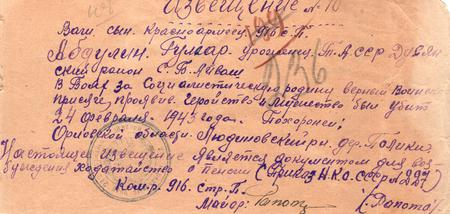 ИЗВЕЩЕНИЕ № 10
Ваш сын Красноармеец 916 с.п.
Абдулин Гумар уроженец Т.АССР Дубъяз
ский район С.Б.Айваш
В Бою За Социалистическую родину верный Воинской
присяге, проявив Геройство и Мужество был убит
24 Февраля 1943 года. Похоронен;
Орловской области. Людиновский рн. дер. Попики.
Настоящее извещение является документом для воз
буждения ходатайство о пенсии (Приказ Н.К.О. СССР №
Ком.р. 916. стр.П.
Майор:
(Рапота).